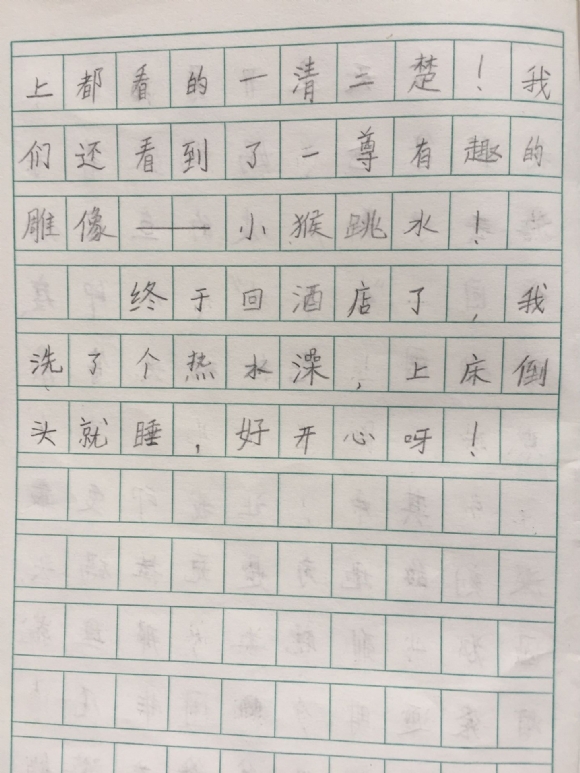 上都看的一清二楚！我
们还看到了一尊有趣的
雕像——小猴跳水！
终于回酒店了，我
洗了个热水澡，上床倒
头就睡，好开心呀！